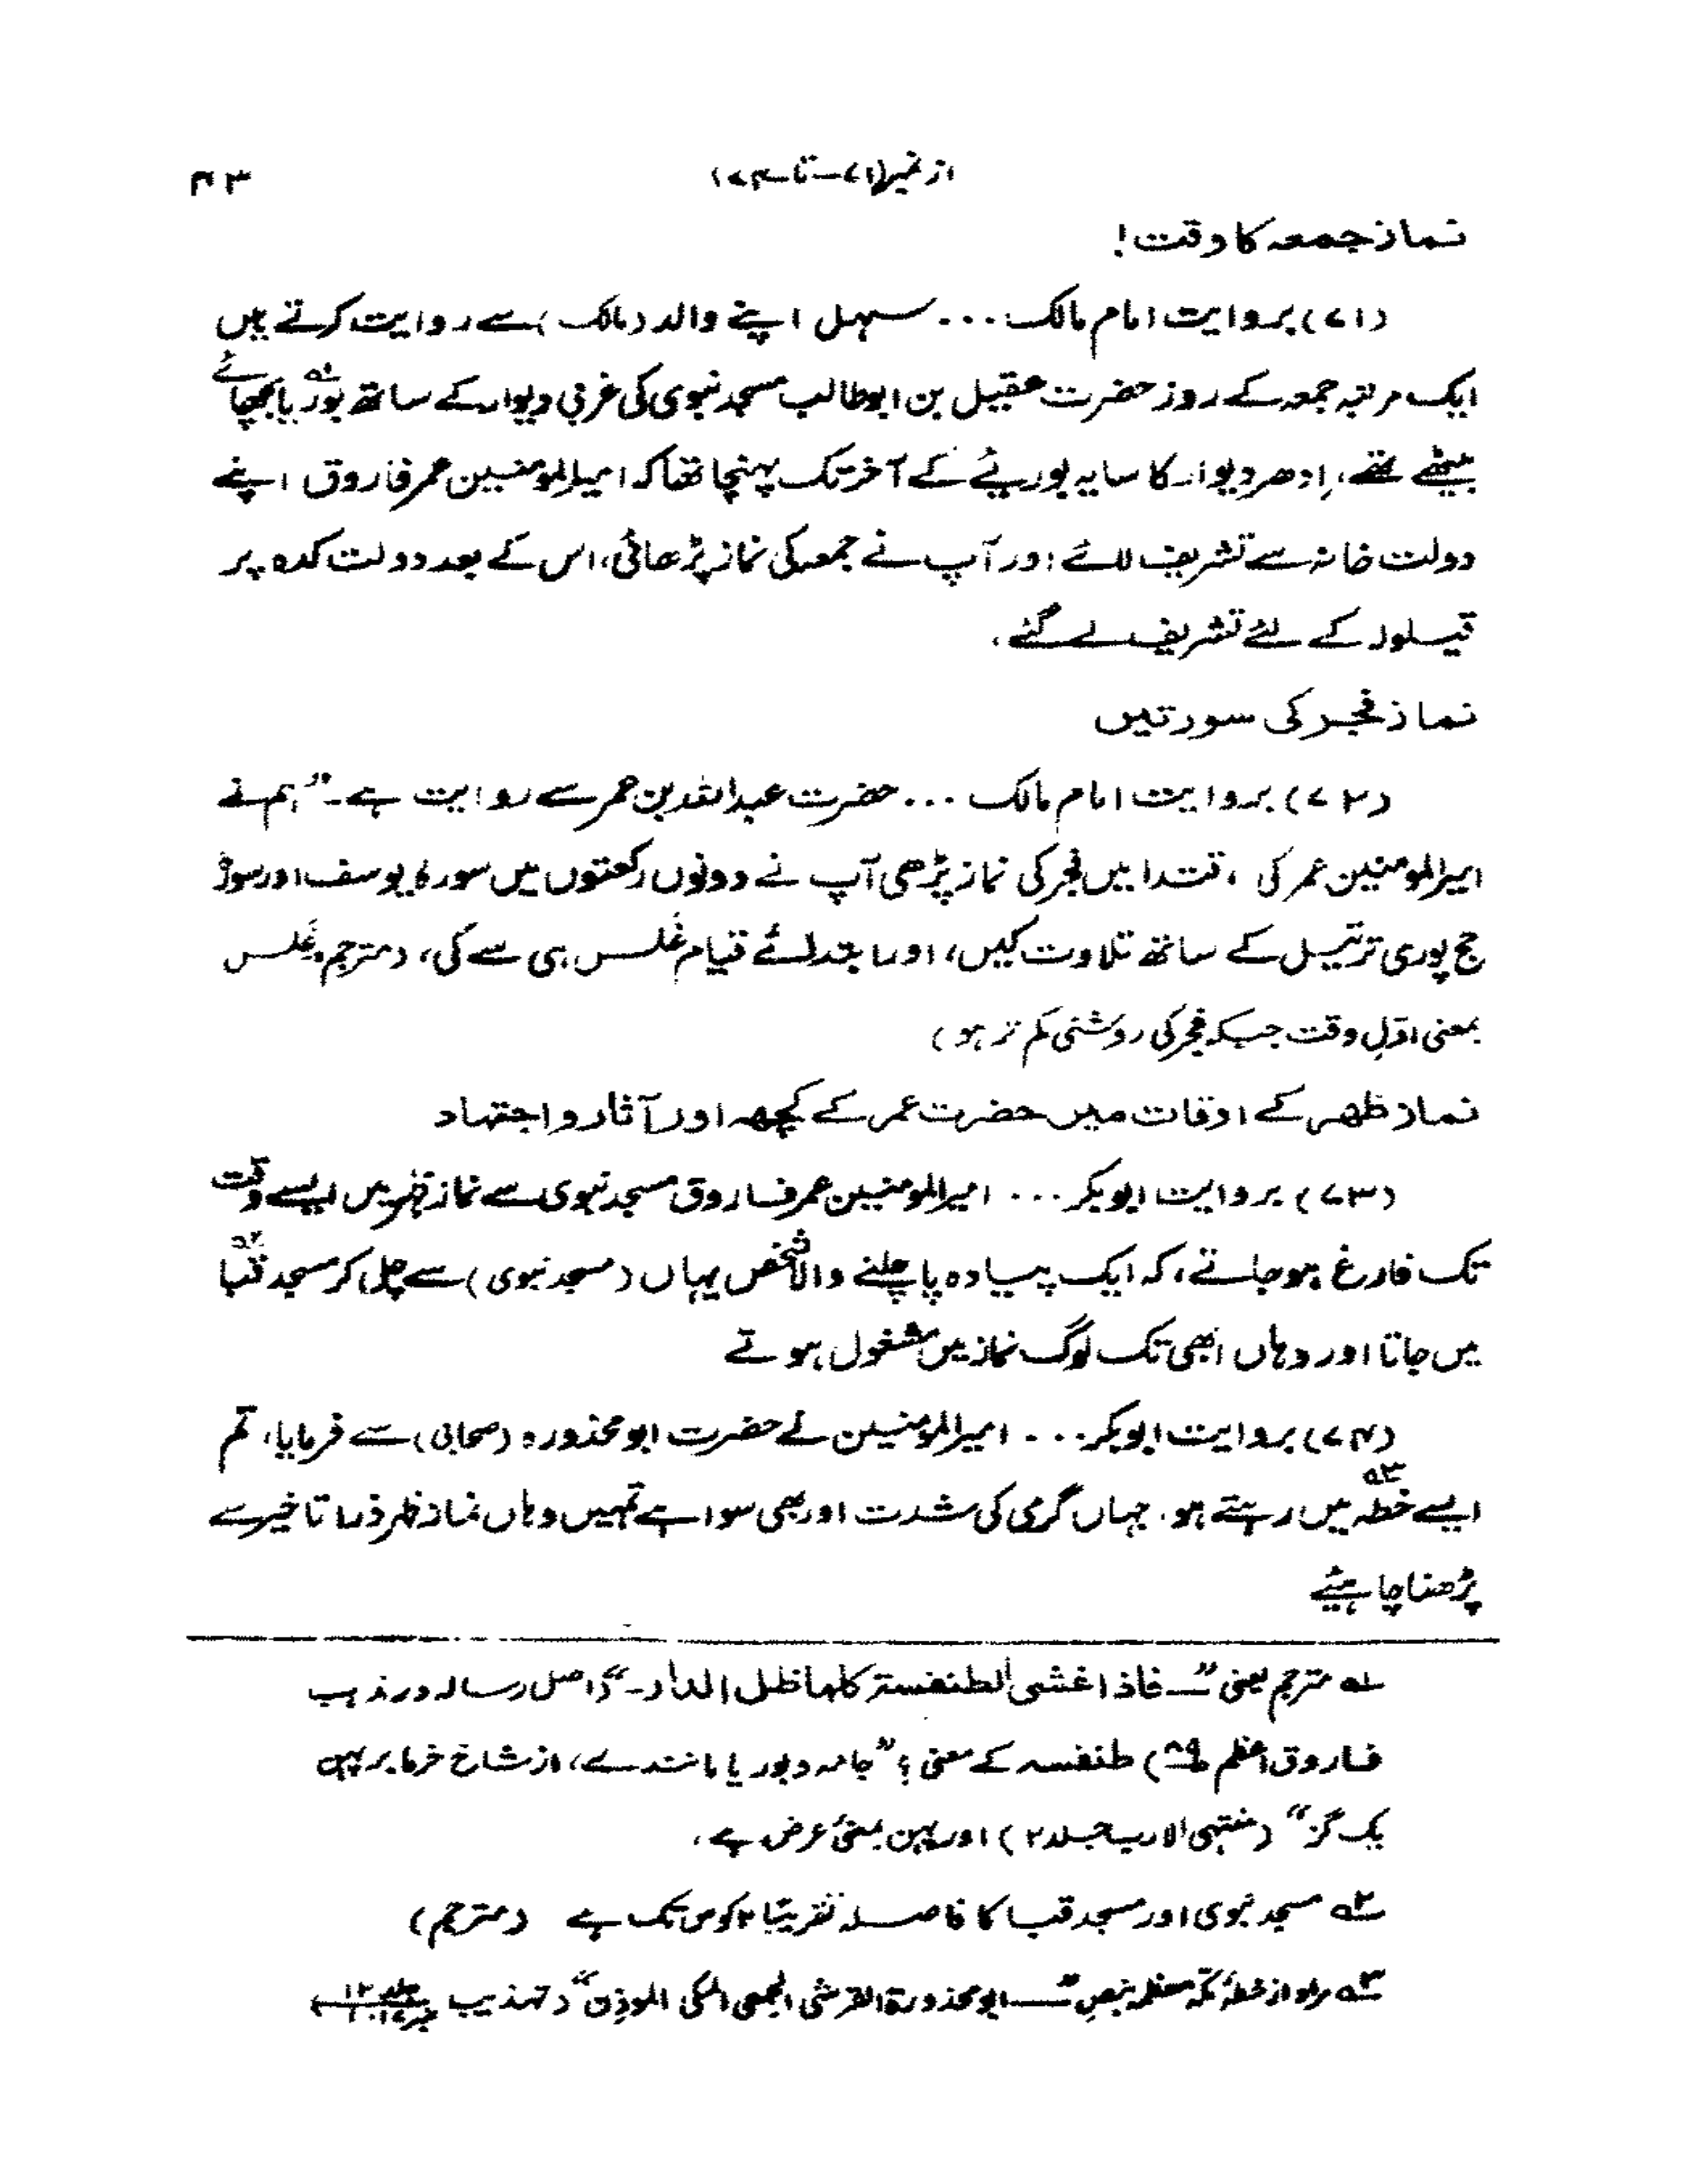 از نمبر (۷۱ تا ۷۴) ۴۳
نماز جمعہ کا وقت!
(۷۱) بروایت امام مالک ... سہل اپنے والد (مالک) سے روایت کرتے ہیں
ایک مرتبہ جمعہ کے روز حضرت عقیل بن ابو طالب مسجد نبوی کی غربی دیوار کے ساتھ بوریا بچھائے
بیٹھے تھے، اِدھر دیوار کا سایہ بوریئے کے آخر تک پہنچا تھا کہ امیر المومنین عمر فاروق اپنے
دولت خانہ سے تشریف لائے اور آپ نے جمعہ کی نماز پڑھائی، اس کے بعد دولت کدہ پر
قیلولہ کے لئے تشریف لے گئے،
نماز فجر کی سورتیں
(۷۲) بروایت امام مالک ... حضرت عبداللہ بن عمر سے روایت ہے۔ "ہم نے
امیر المومنین عمر کی اقتدا میں فجر کی نماز پڑھی آپ نے دونوں رکعتوں میں سورۂ یوسف اور سورۂ
حج پوری ترتیل کے ساتھ تلاوت کیں، اور ابتدائے قیام غَلس ہی سے کی، (مترجم: غَلس
بمعنی اوّلِ وقت جبکہ فجر کی روشنی کم تر ہو)
نماز ظہر کے اوقات میں حضرت عمر کے کچھ اور آثار و اجتہاد
(۷۳) بروایت ابوبکر ... امیر المومنین عمر فاروق مسجد نبوی سے نماز ظہر میں ایسے وقت
تک فارغ ہو جاتے، کہ ایک پیادہ پا چلنے والا شخص یہاں (مسجد نبوی) سے چل کر مسجد قبا ۲ھ
میں جاتا اور وہاں ابھی تک لوگ نماز میں مشغول ہوتے
(۷۴) بروایت ابوبکر ... امیر المومنین نے حضرت ابو محذورہ (صحابی) سے فرمایا، تم
ایسے خطہ ۳ھ میں رہتے ہو، جہاں گرمی کی شدت اور بھی سوا ہے تمہیں وہاں نماز ظہر ذرا تاخیر سے
پڑھنا چاہیئے
۱ھ مترجم یعنی "فاذا غشی الطنفسۃ کلہا ظل الدار۔" (اصل رسالہ در مذہب
فاروق اعظم ص۸۹) طنفسہ کے معنی؟ "جامہ و بوریا مانندے، از شاخ خرما بر پہن
یک گز" (منتہی الارب جلد ۲) اور پہن بمعنیٔ عرض ہے،
۲ھ مسجد نبوی اور مسجد قبا کا فاصلہ تقریبًا ۲ کوس تک ہے (مترجم)
۳ھ مراد از خطہ مکّہ معظمہ بنصِ "ابو محذورۃ القرشی الجمحی المکی الموذن" (تہذیب جلد ۱۲